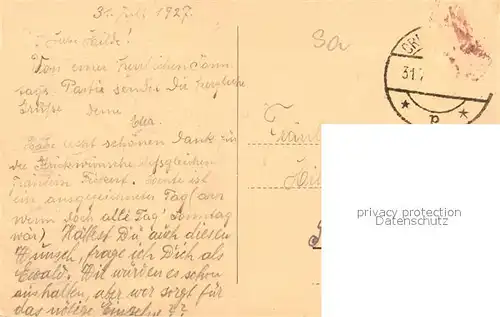 31. Juli 1927.
Liebe Hilde!
Von einer herrlichen Sonn
tags-Partie sendet Dir herzliche
Grüße Deine
Habe recht schönen Dank für
die Glückwünsche desgleichen
Fräulein Heute ist
ein ausgezeichneter Tag (ach
wenn doch alle Tag' Sonntag
wär) Hättest Du auch diesen
Wunsch, frage ich Dich als
Ewald. Wir würden es schon
aushalten, aber wer sorgt für
das nötige
31.7
Fräulein
privacy protection
Datenschutz